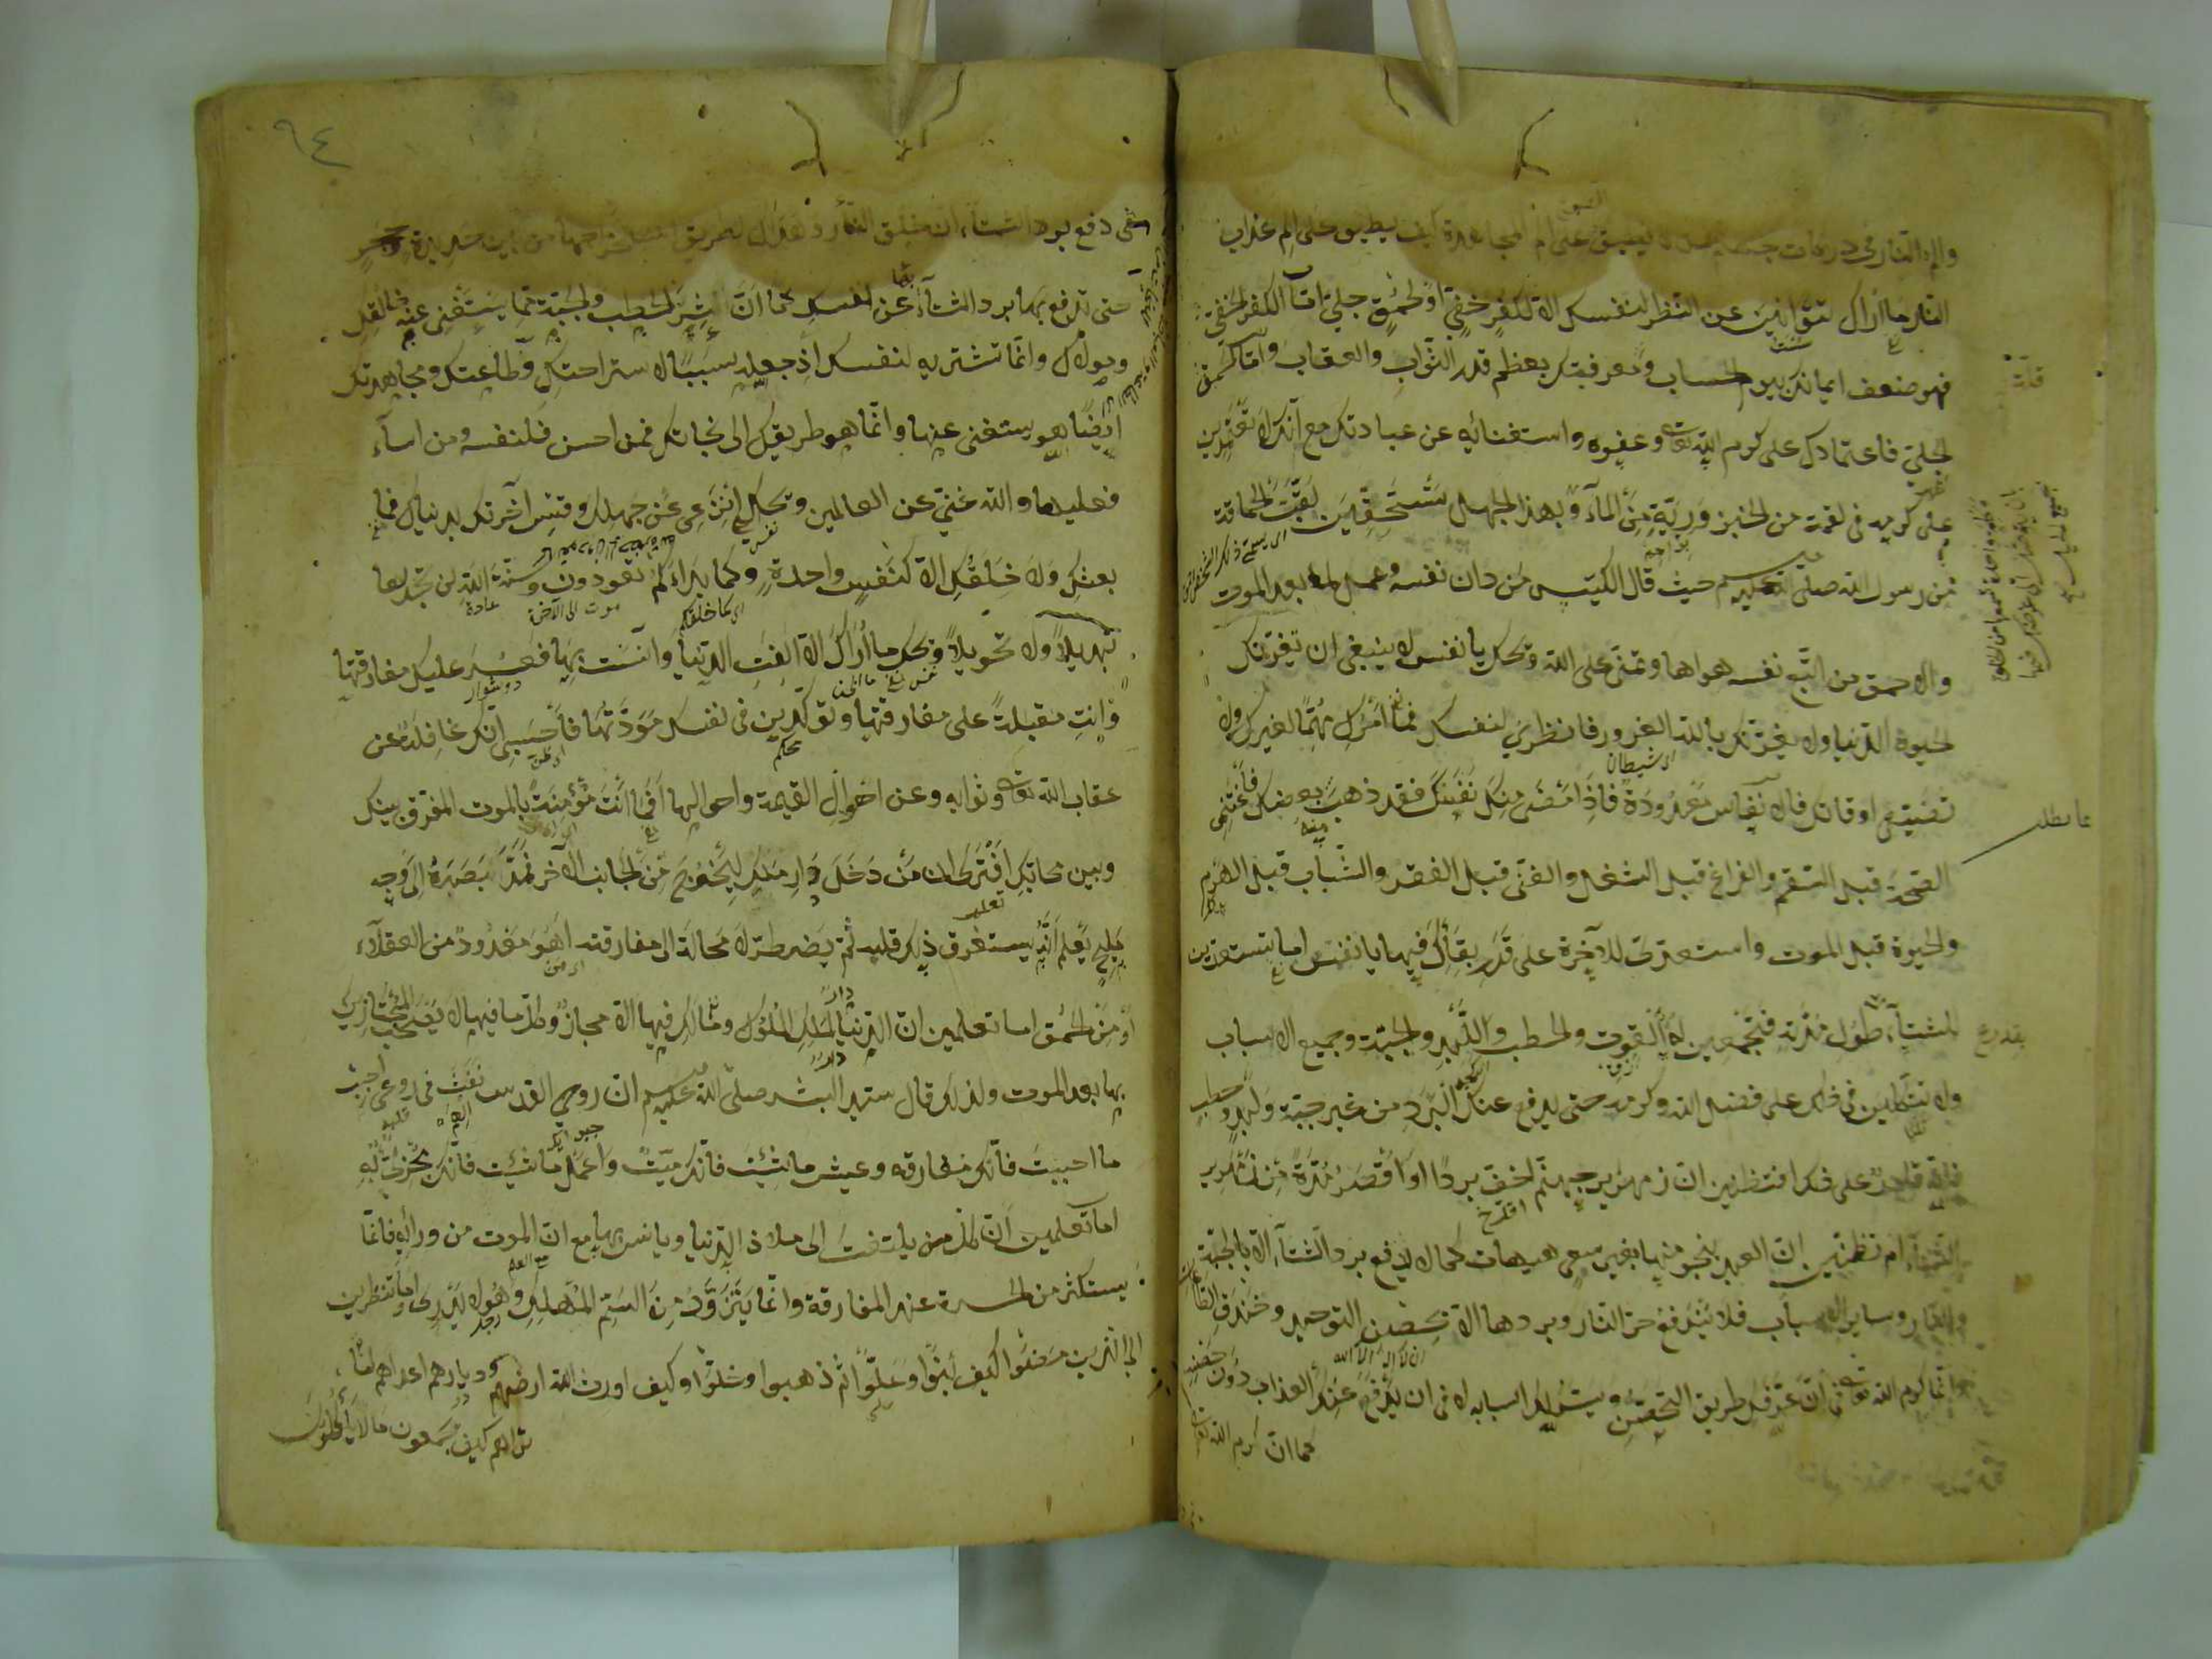 والاء النار في دركات جهنم فمن لا يطيق الصبر على ألم المجاهدة كيف يطيق على ألم عذاب
النار ما أراك تتوانين عن النظر لنفسك الا لكفر خفي او لحمق جلي اما الكفر الخفي
فهو ضعف ايمانك بيوم الحساب ومعرفتك بعظم قدر الثواب والعقاب واما الحمق
الجلي فاعتمادك على كرم الله تعالى وعفوه واستغنائه عن عبادتك مع انك لا تعتمدين
على كرمه في لقمة من الخبز وربة من الماء وبهذا الجهل تستحقين لقب الحماقة
من رسول الله صلى الله عليه وسلم حيث قال الكيس من دان نفسه وعمل لما بعد الموت
والاحمق من اتبع نفسه هواها وتمنى على الله ويحك يا نفس لا ينبغي ان تغرنك
الحيوة الدنيا ولا يغرنك بالله الغرور فانظري لنفسك فما امرك مهما لغيرك ولا
تضيعي اوقاتك فالانفاس معدودة فاذا مضى منك نفس فقد ذهب بعضك فاغتنمي
الصحة قبل السقم والفراغ قبل الشغل والغنى قبل الفقر والشباب قبل الهرم
والحيوة قبل الموت واستعدي للآخرة على قدر بقائك فيها يا نفس اما تستعدين
للشتاء بقدر طول مدته فتجمعين له القوت والحطب واللبد والجبة وجميع الاسباب
ولا تتكلين في ذلك على فضل الله وكرمه حتى يدفع عنك البرد من غير جبة ولبد وحطب
فانه قادر على ذلك افتظنين ان زمهرير جهنم اخف بردا او اقصر مدة من زمهرير
الشتاء ام تظنين ان العبد ينجو منها بغير سعي هيهات كما لا يدفع برد الشتاء الا بالجبة
والنار وساير الاسباب فلا يندفع حر النار وبردها الا بحصن التوحيد وخندق الطاعات
وانما كرم الله تعالى في ان عرفك طريق التحصن ويسر لك اسبابه لا في ان يدفع عنك العذاب دون حصنه
كما ان كرم الله تعالى
٩٤
في دفع برد الشتاء ان خلق النار وهداك لطريق استخراجها من بين حديدة وحجر
حتى تدفع بها برد الشتاء عن نفسك كما ان شرى الحطب والجبة مما يستغني عنه خالقك
ومولاك وانما تشتريه لنفسك اذ جعله سببا لاستراحتك وطاعتك ومجاهدتك
ايضا هو يستغني عنها وانما هو طريقك الى نجاتك فمن احسن فلنفسه ومن اساء
فعليها والله غني عن العالمين ويحك انزعي عن جهلك وقيسي آخرتك بدنياك فما
بعثكم ولا خلقكم الا كنفس واحدة وكما بدأكم تعودون وسنة الله لن تجد لها
تبديلا ولا تحويلا ويحك ما اراك الا الفت الدنيا وآنست بها فعسر عليك مفارقتها
وانت مقبلة على مفارقتها وتؤكدين في نفسك مودتها فاحسبي انك غافلة عن
عقاب الله تعالى وثوابه وعن اهوال القيمة واحوالها افما انت مؤمنة بالموت المفرق بينك
وبين محابك افترى ان من دخل دار ملك ليخرج من الجانب الآخر فمد بصره الى وجه
مليح يعلم انه يستغرق ذلك قلبه ثم يضطر لا محالة الى مفارقته اهو معدود من العقلاء
او من الحمق اما تعلمين ان الدنيا دار لملك الملوك وما لك فيها الا مجاز وكل ما فيها لا يصحب المجتازين
بها بعد الموت ولذلك قال سيد البشر صلى الله عليه وسلم ان روح القدس نفث في روعي احبب
ما احببت فانك مفارقه وعش ما شئت فانك ميت واعمل ما شئت فانك مجزي به
اما تعلمين ان كل من يلتفت الى ملاذ الدنيا ويانس بها مع ان الموت من ورائه فانما
يستكثر من الحسرة عند المفارقة وانما يتزود من السم المهلك وهو لا يدري اوما تنظرين
الى الذين مضوا كيف بنوا وعلوا ثم ذهبوا وخلوا وكيف اورث الله ارضهم وديارهم اعداهم اما
تراهم كيف يجمعون ما لا يأكلون